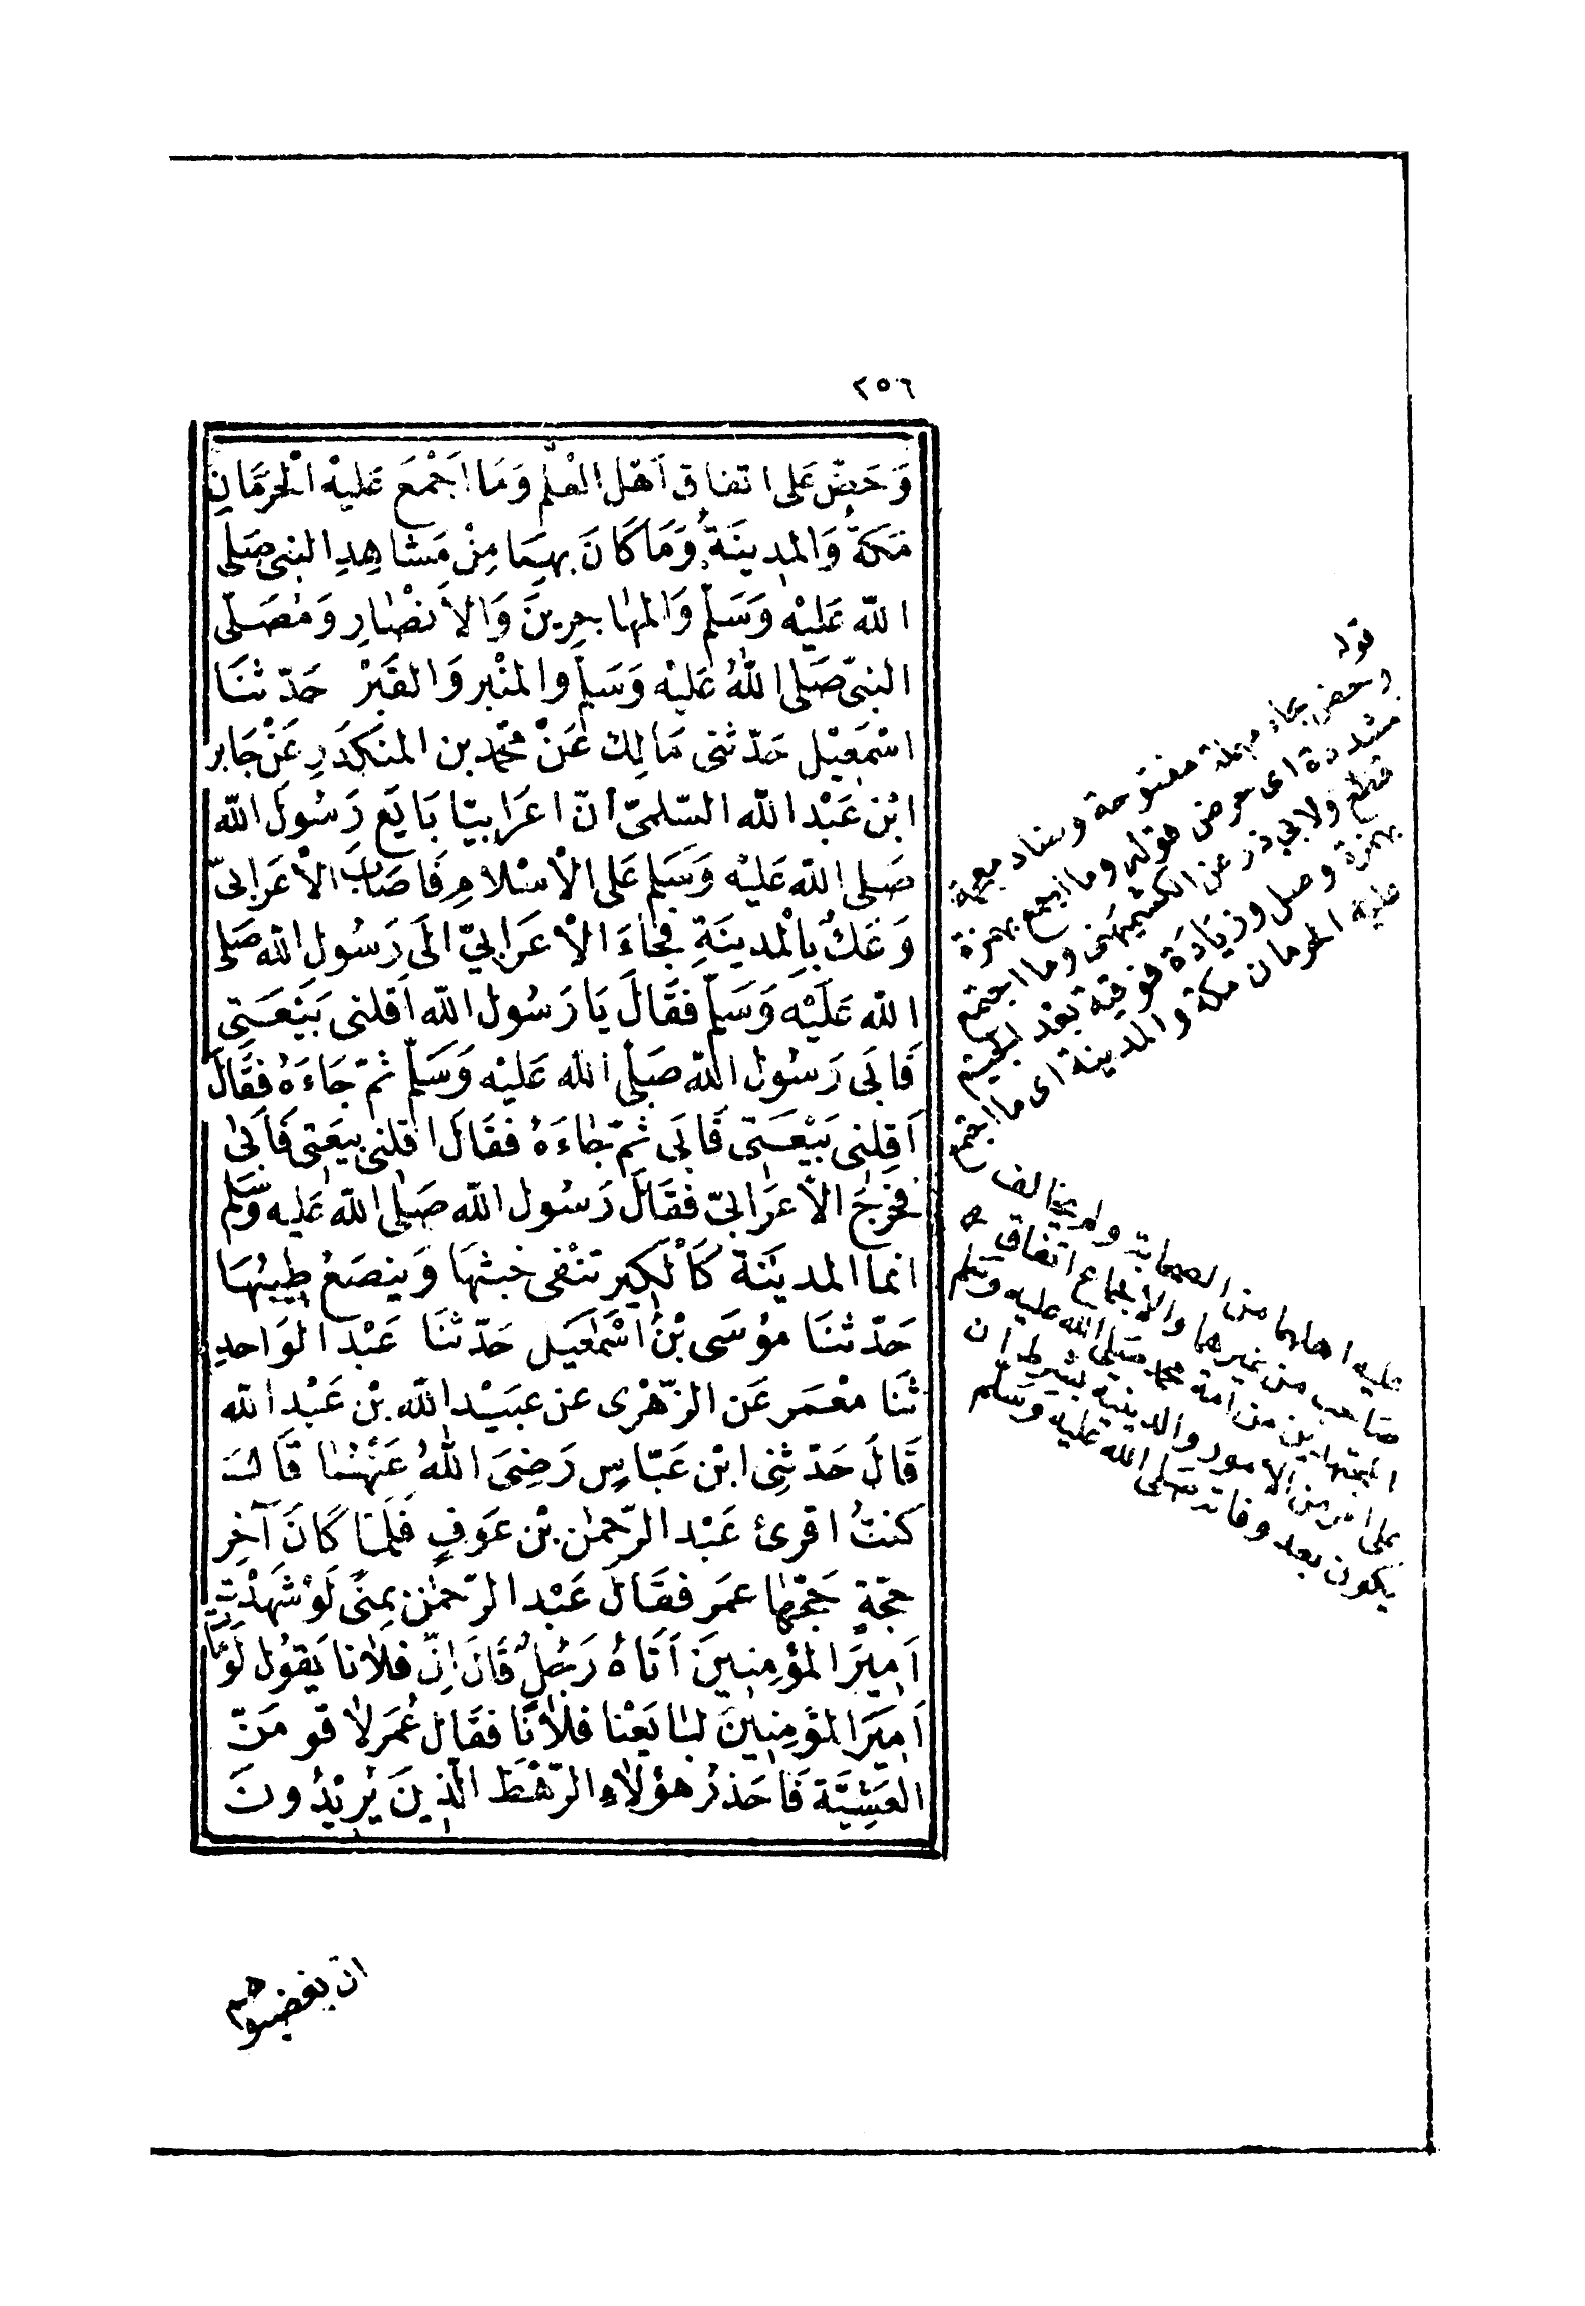 ٢٥٦
وَحَضَّ عَلى اتفاق اَهْل العْلم وَمَا اَجْمَعَ عَليْه الْحَرَمَانِ
مَكةُ وَالمدِينَةُ وَمَا كَانَ بهِمَا مِنْ مَشَاهِدِ النبي صَلى
الله عَليْه وَسَلم وَالمهَاجِرينَ وَالأنْصَارِ وَمُصَلّى
النبيّ صَلى اللهُ عَليْه وَسَلم والمنْبر وَالقَبَرْ حَدّثنَا
اسْمعِيْل حَدّثنى مَالِك عَنْ محمّد بن المنكَدَرِ عَنْ جَابر
ابْن عَبْد الله السّلمىّ أنّ اعَرَابيّا بَايَع رَسُولَ الله
صَلى الله عَليْه وَسَلم عَلى الْاسْلامِ فَاصَابَ الْاعَرَابىّ
وَعَكٌ بِالْمدينَةِ فجَاءَ الْاعَرَابيّ الَى رَسُول الله صَلى
الله عَلَيْه وَسَلّم فقَالَ يَا رَسُول الله اَقلنى بَيْعَتى
فَابَى رَسُول الله صَلى الله عَليْه وَسَلّم ثمّ جَاءَهُ فقَالَ
اَقِلنى بَيْعَتى فَابَى ثمّ جَاءَهُ فقَالَ اقلنى بيعَتى فَابىٰ
فخرجَ الاعَرَابىّ فقَالَ رَسُول الله صَلى الله عَليه وَسَلم
انما المدينَة كَالْكِير تنْفى خبثهَا وَينصَعُ طِيبُهَا
حَدّثنَا موُسَى بْنُ اسْمعَيل حَدّثنَا عَبْد الوَاحدِ
ثنَا معْمَر عَن الزّهْرى عن عبَيْد الله بْن عَبْد الله
قَالَ حَدّثنِى ابْن عَبّاسٍ رَضِىَ اللهُ عَنْهُمَا قَالَ
كنتُ اقرئ عَبْد الرّحمٰن بْن عَوفٍ فَلمّا كَانَ آخِر
حجّةٍ حَجّهَا عمَر فقَالَ عَبْد الرّحمٰن بِمنًى لَوْ شَهِدْتَ
اَميرَ المؤمِنينَ اَتَاهُ رَجُلٌ قَالَ اِنّ فلانا يَقوُل لَوْ مَاتَ
اَميَر المؤمِنينَ لبَايَعْنا فلانًا فقَال عُمَر لا قومَنّ
العَشِيَّة فَاحَذرُ هؤلاءِ الرّهْطَ الّذينَ يُريْدُونَ
ان يغضبوهم
قوله
وحض بحاء مهملة مفتوحة وضاد معجمة
مشددة اى حرض قوله وما اجمع بهمزة
قطع ولابي ذر عن الكشميهنى وما اجتمع
بهمزة وصل وزيادة فوقية بعد الجيم
عليه الحرمان مكة والمدينة اى ما اجتمع
عليه اهلهما من الصحابة ولم يخالف
صاحب من غيرهما والاجماع اتفاق
المجتهدين من امة محمد صلى الله عليه وسلم
على امر من الامور الدينية بشرط ان
يكون بعد وفاته صلى الله عليه وسلم